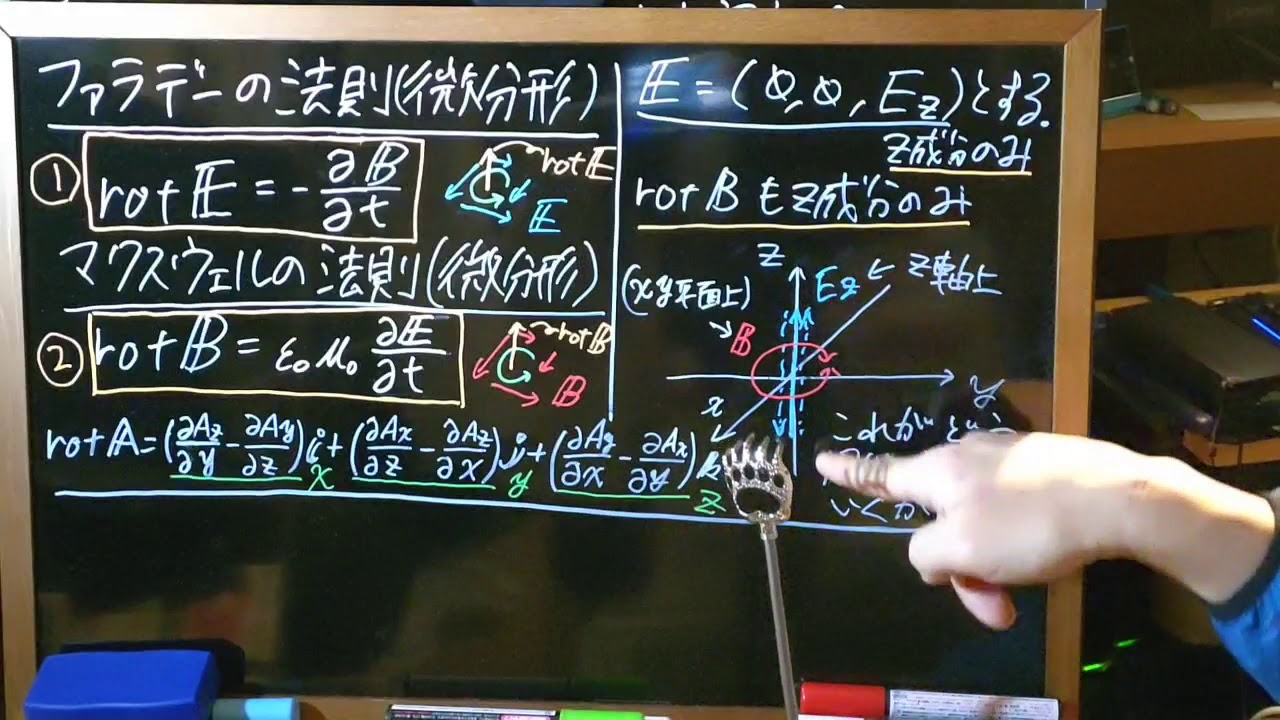 ファラデーの法則(微分形)
① rot𝔼 = -∂𝔹/∂t
rot𝔼
𝔼
マクスウェルの法則(微分形)
② rot𝔹 = ε₀μ₀ ∂𝔼/∂t
rot𝔹
𝔹
rot𝔸=(∂Az/∂y-∂Ay/∂z)𝕚+(∂Ax/∂z-∂Az/∂x)𝕛+(∂Ay/∂x-∂Ax/∂y)𝕜
x y z
𝔼=(0,0,Ez)とする.
z成分のみ
rot𝔹もz成分のみ
z
z軸上
(xy平面上)
Ez
𝔹
y
x
これがどう
いくか